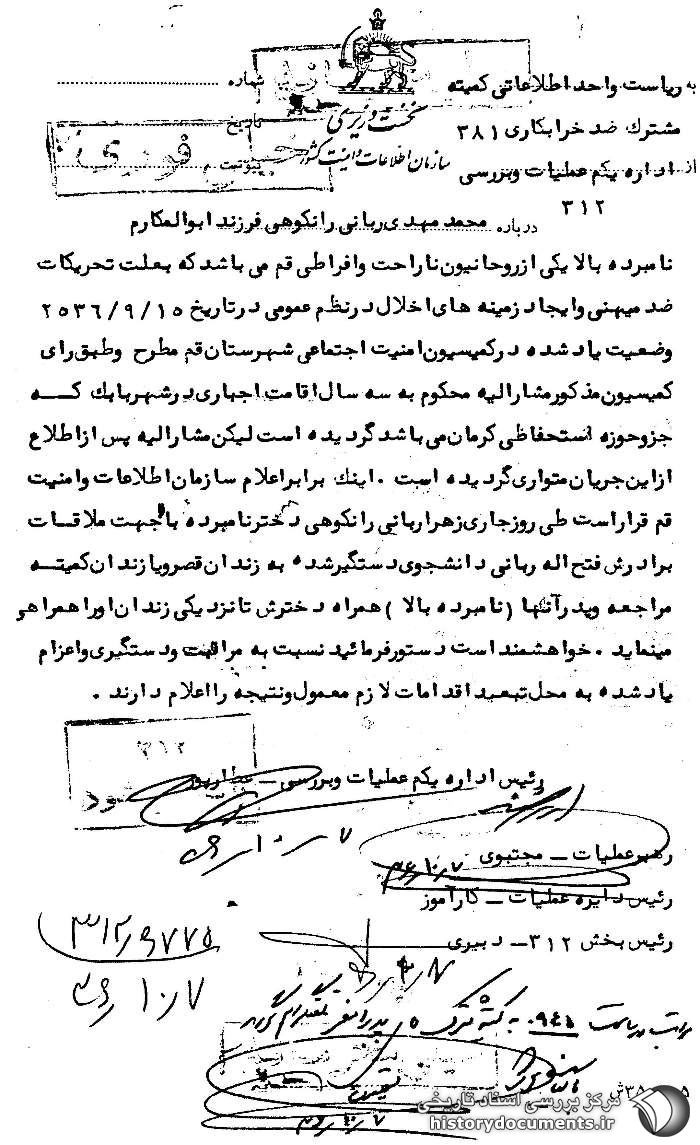 به ریاست واحد اطلاعاتی کمیته
شماره
مشترك ضد خرابکاری ۳۸۱
نخست وزیری
تاریخ
سازمان اطلاعات و امنیت کشور
پیوست
از اداره یکم عملیات و بررسی
۳۱۲
درباره محمد مهدی ربانی رانکوهی فرزند ابوالمکارم
نامبرده بالا یکی از روحانیون ناراحت و افراطی قم می باشد که بعلت تحریکات
ضد میهنی و ایجاد زمینه های اخلال در نظم عمومی در تاریخ ۲۵۳۶/۹/۱۵
وضعیت یاد شده در کمیسیون امنیت اجتماعی شهرستان قم مطرح و طبق رای
کمیسیون مذکور مشارالیه محکوم به سه سال اقامت اجباری در شهربابك کـــه
جزو حوزه استحفاظی کرمان می باشد گردیده است لیکن مشارالیه پس از اطلاع
از این جریان متواری گردیده است . اینك برابر اعلام سازمان اطلاعات و امنیت
قم قرار است طی روز جاری زهرا ربانی رانکوهی دختر نامبرده بالا جهت ملاقات
برادرش فتح اله ربانی دانشجوی دستگیر شده به زندان قصر و یا زندان کمیتـــه
مراجعه و پدر آنها ( نامبرده بالا ) همراه دخترش تا نزدیکی زندان او را همراهی
مینماید . خواهشمند است دستور فرمائید نسبت به مراقبت و دستگیری و اعزام
یاد شده به محل تبعید اقدامات لازم معمول و نتیجه را اعلام دارند .
۳۱۲
رئیس اداره یکم عملیات و بررسی – عطارپور
رهبر عملیات – مجتبوی
۳۶/۱۰/۷
رئیس دایره عملیات – کارآموز
رئیس بخش ۳۱۲ – دبیری
۳۱۲/۶۷۷۵
۳۶/۱۰/۷
مرکز بررسی اسناد تاریخی
historydocuments.ir